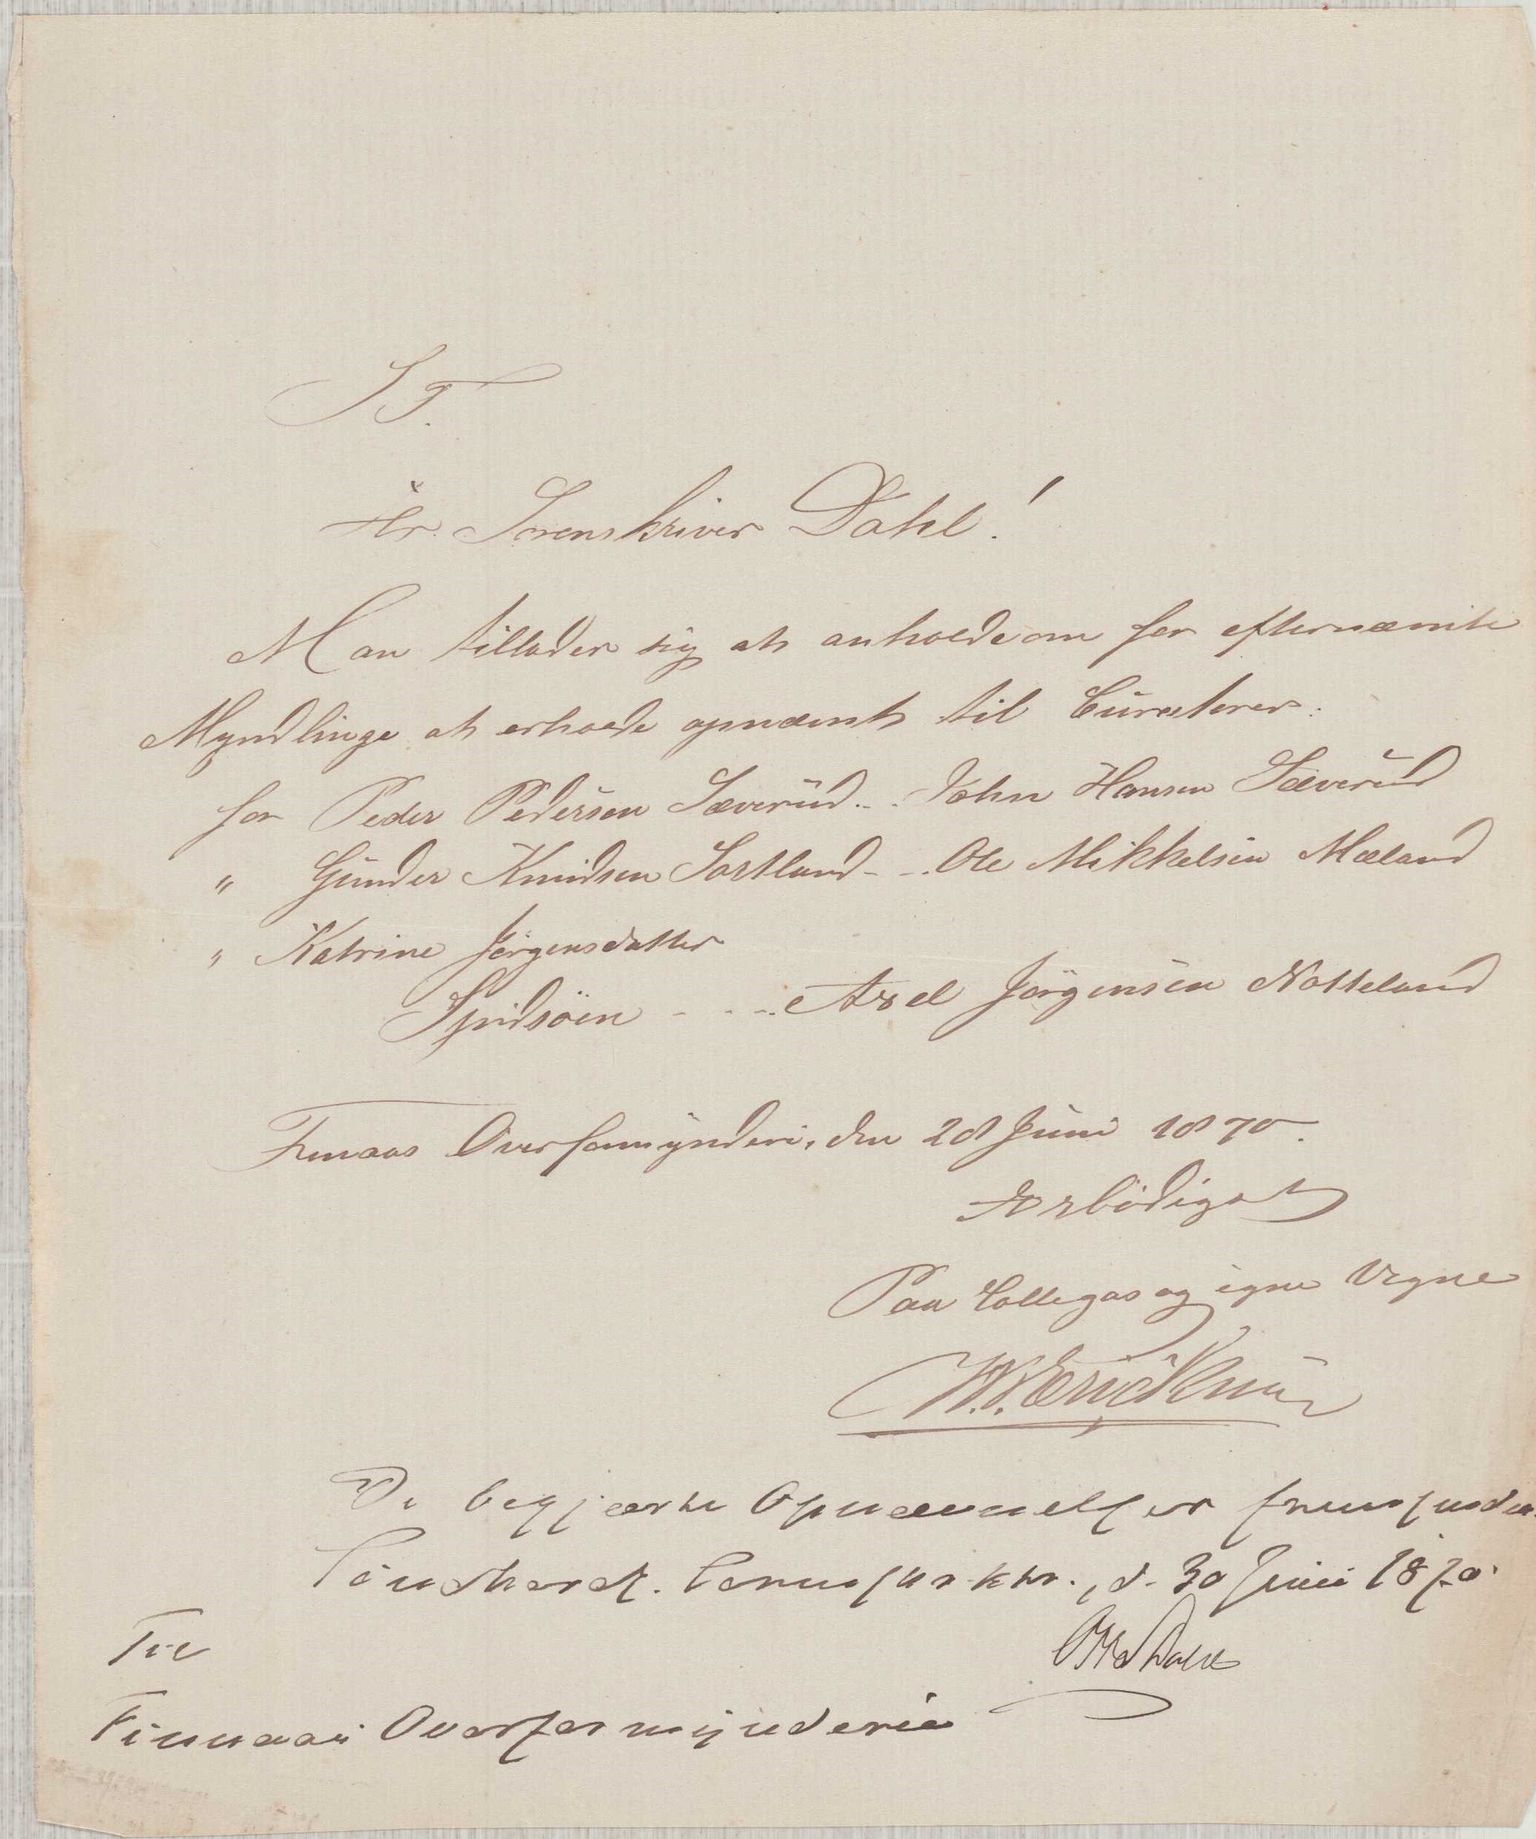 S.T.
Hr. Sorenskriver Dahl!
Man tillader sig at anholde om for efternævnte
Myndlinge at erholde opnævnt til Curatorer:
for Peder Pedersen Sæverüd... John Hansen Sæverüd
" Günder Knüdsen Sortland - -. Ole Mikkelsen Mæland
" Katrine Jörgensdatter
Spidsöen - - - -.. Axel Jörgensen Notteland
Finaas Overformÿnderi, den 28 Jüni 1870.
Ærbödigst
Paa Collegas og egne Vegne
De begjærte Opnævnelser fremsender
Söndhordl. Sorenskrktr., d. 30 Juni 1870.
Otto Dahl
Til
Finnaas Overformynderie